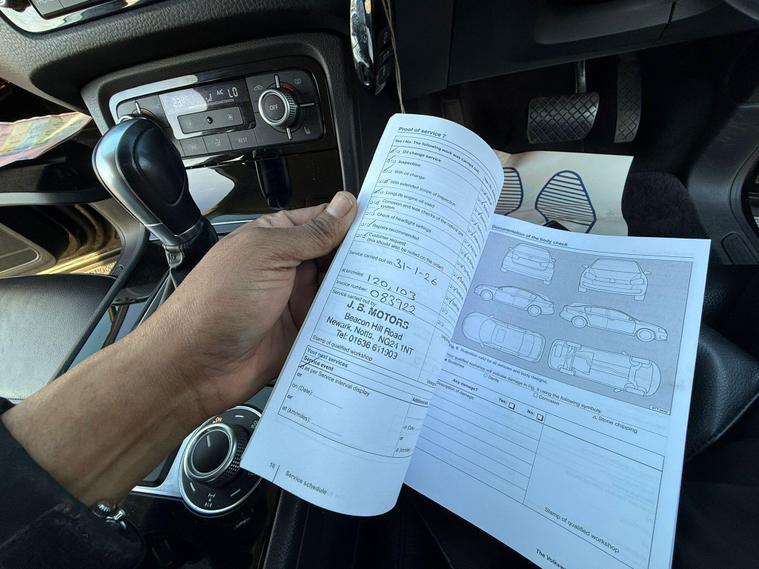 A/C LO
OFF
REST
Proof of service 7
Yes / No The following work was carried out:
Oil change service
Inspection
With oil change
With extended scope of inspection
LongLife engine oil used
Corrosion and leak checks of the
system
Check of headlight settings
Repairs recommended
Customer request
(this should also be noted on the
Service carried out on: 31-1-26
at km/miles: 120,103
Invoice number: 083922
Service carried out by:
J. B. MOTORS
Beacon Hill Road
Newark, Notts, NG24 1NT
Tel: 01636 611903
Stamp of qualified workshop
Your next services
Service event
as per Service interval display
on (Date):
or
at (km/miles):
18 Service schedule
Documentation of the body check
Any damage?
Yes: No:
Corrosion
Stone chipping
Stamp of qualified workshop
The Volkswa